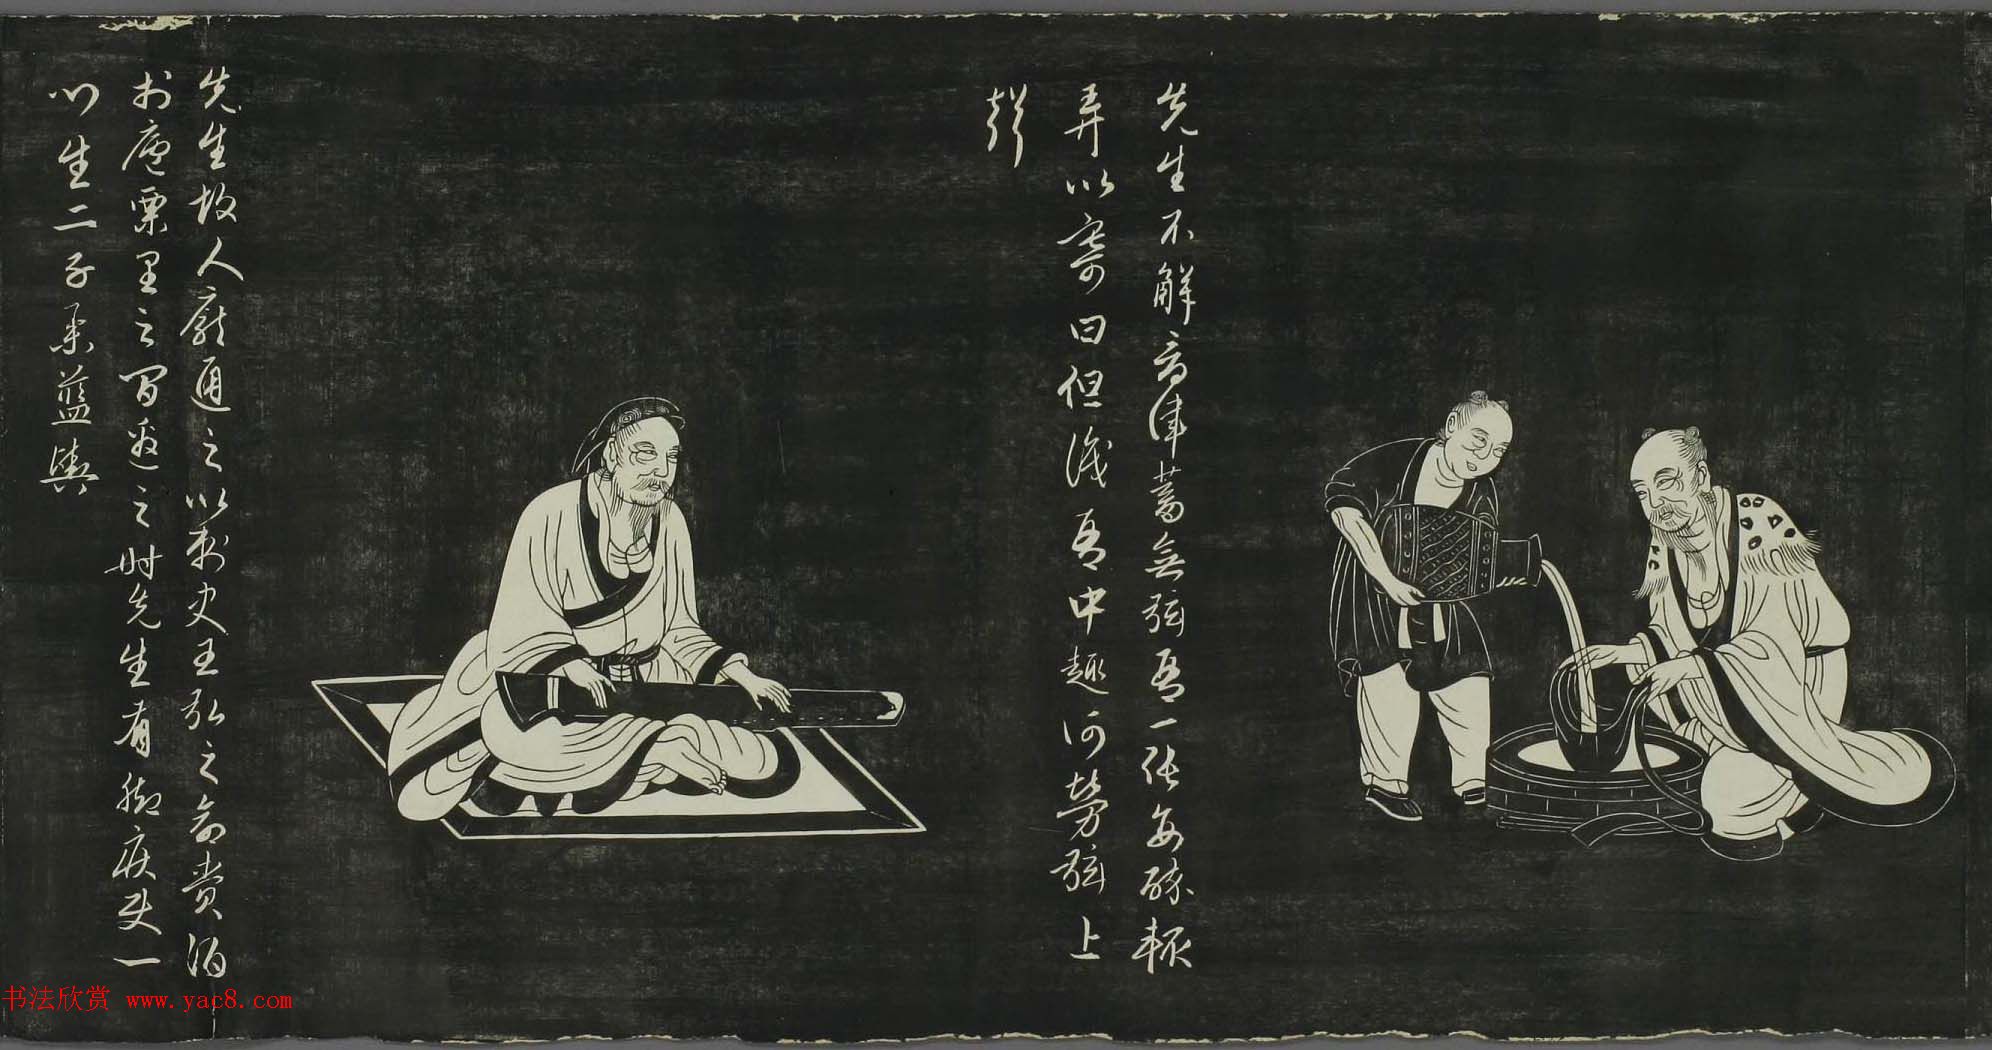 先生不解音律蓄無弦琴一張每酣輒
弄以寄曰但識琴中趣何勞弦上
聲
先生故人龐通之以刺史王弘之命賫酒
於廬栗里之間邀之時先生有脚疾使一
門生二子舁藍輿
书法欣赏 www.yac8.com